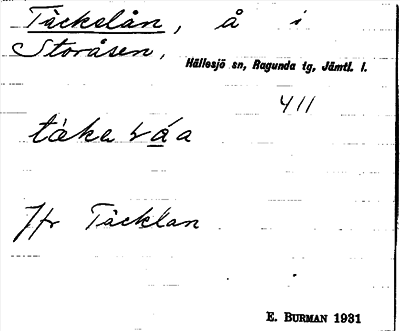 Täckelån, å i
Storåsen,
Hällesjö sn, Ragunda tg, Jämtl. l.
4/11
Jfr Täcklan
E. BURMAN 1931